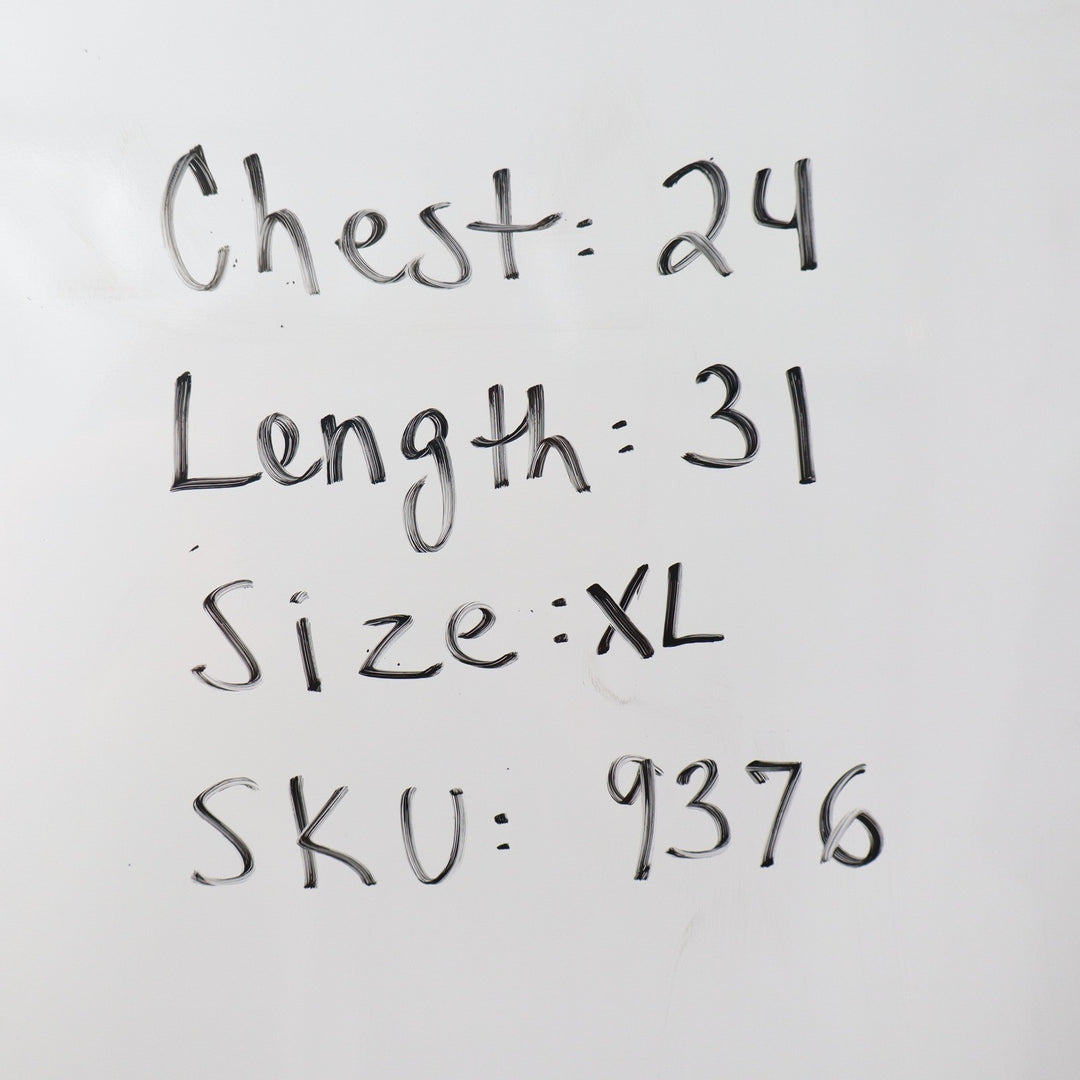 Chest: 24
Length: 31
Size: XL
SKU: 9376